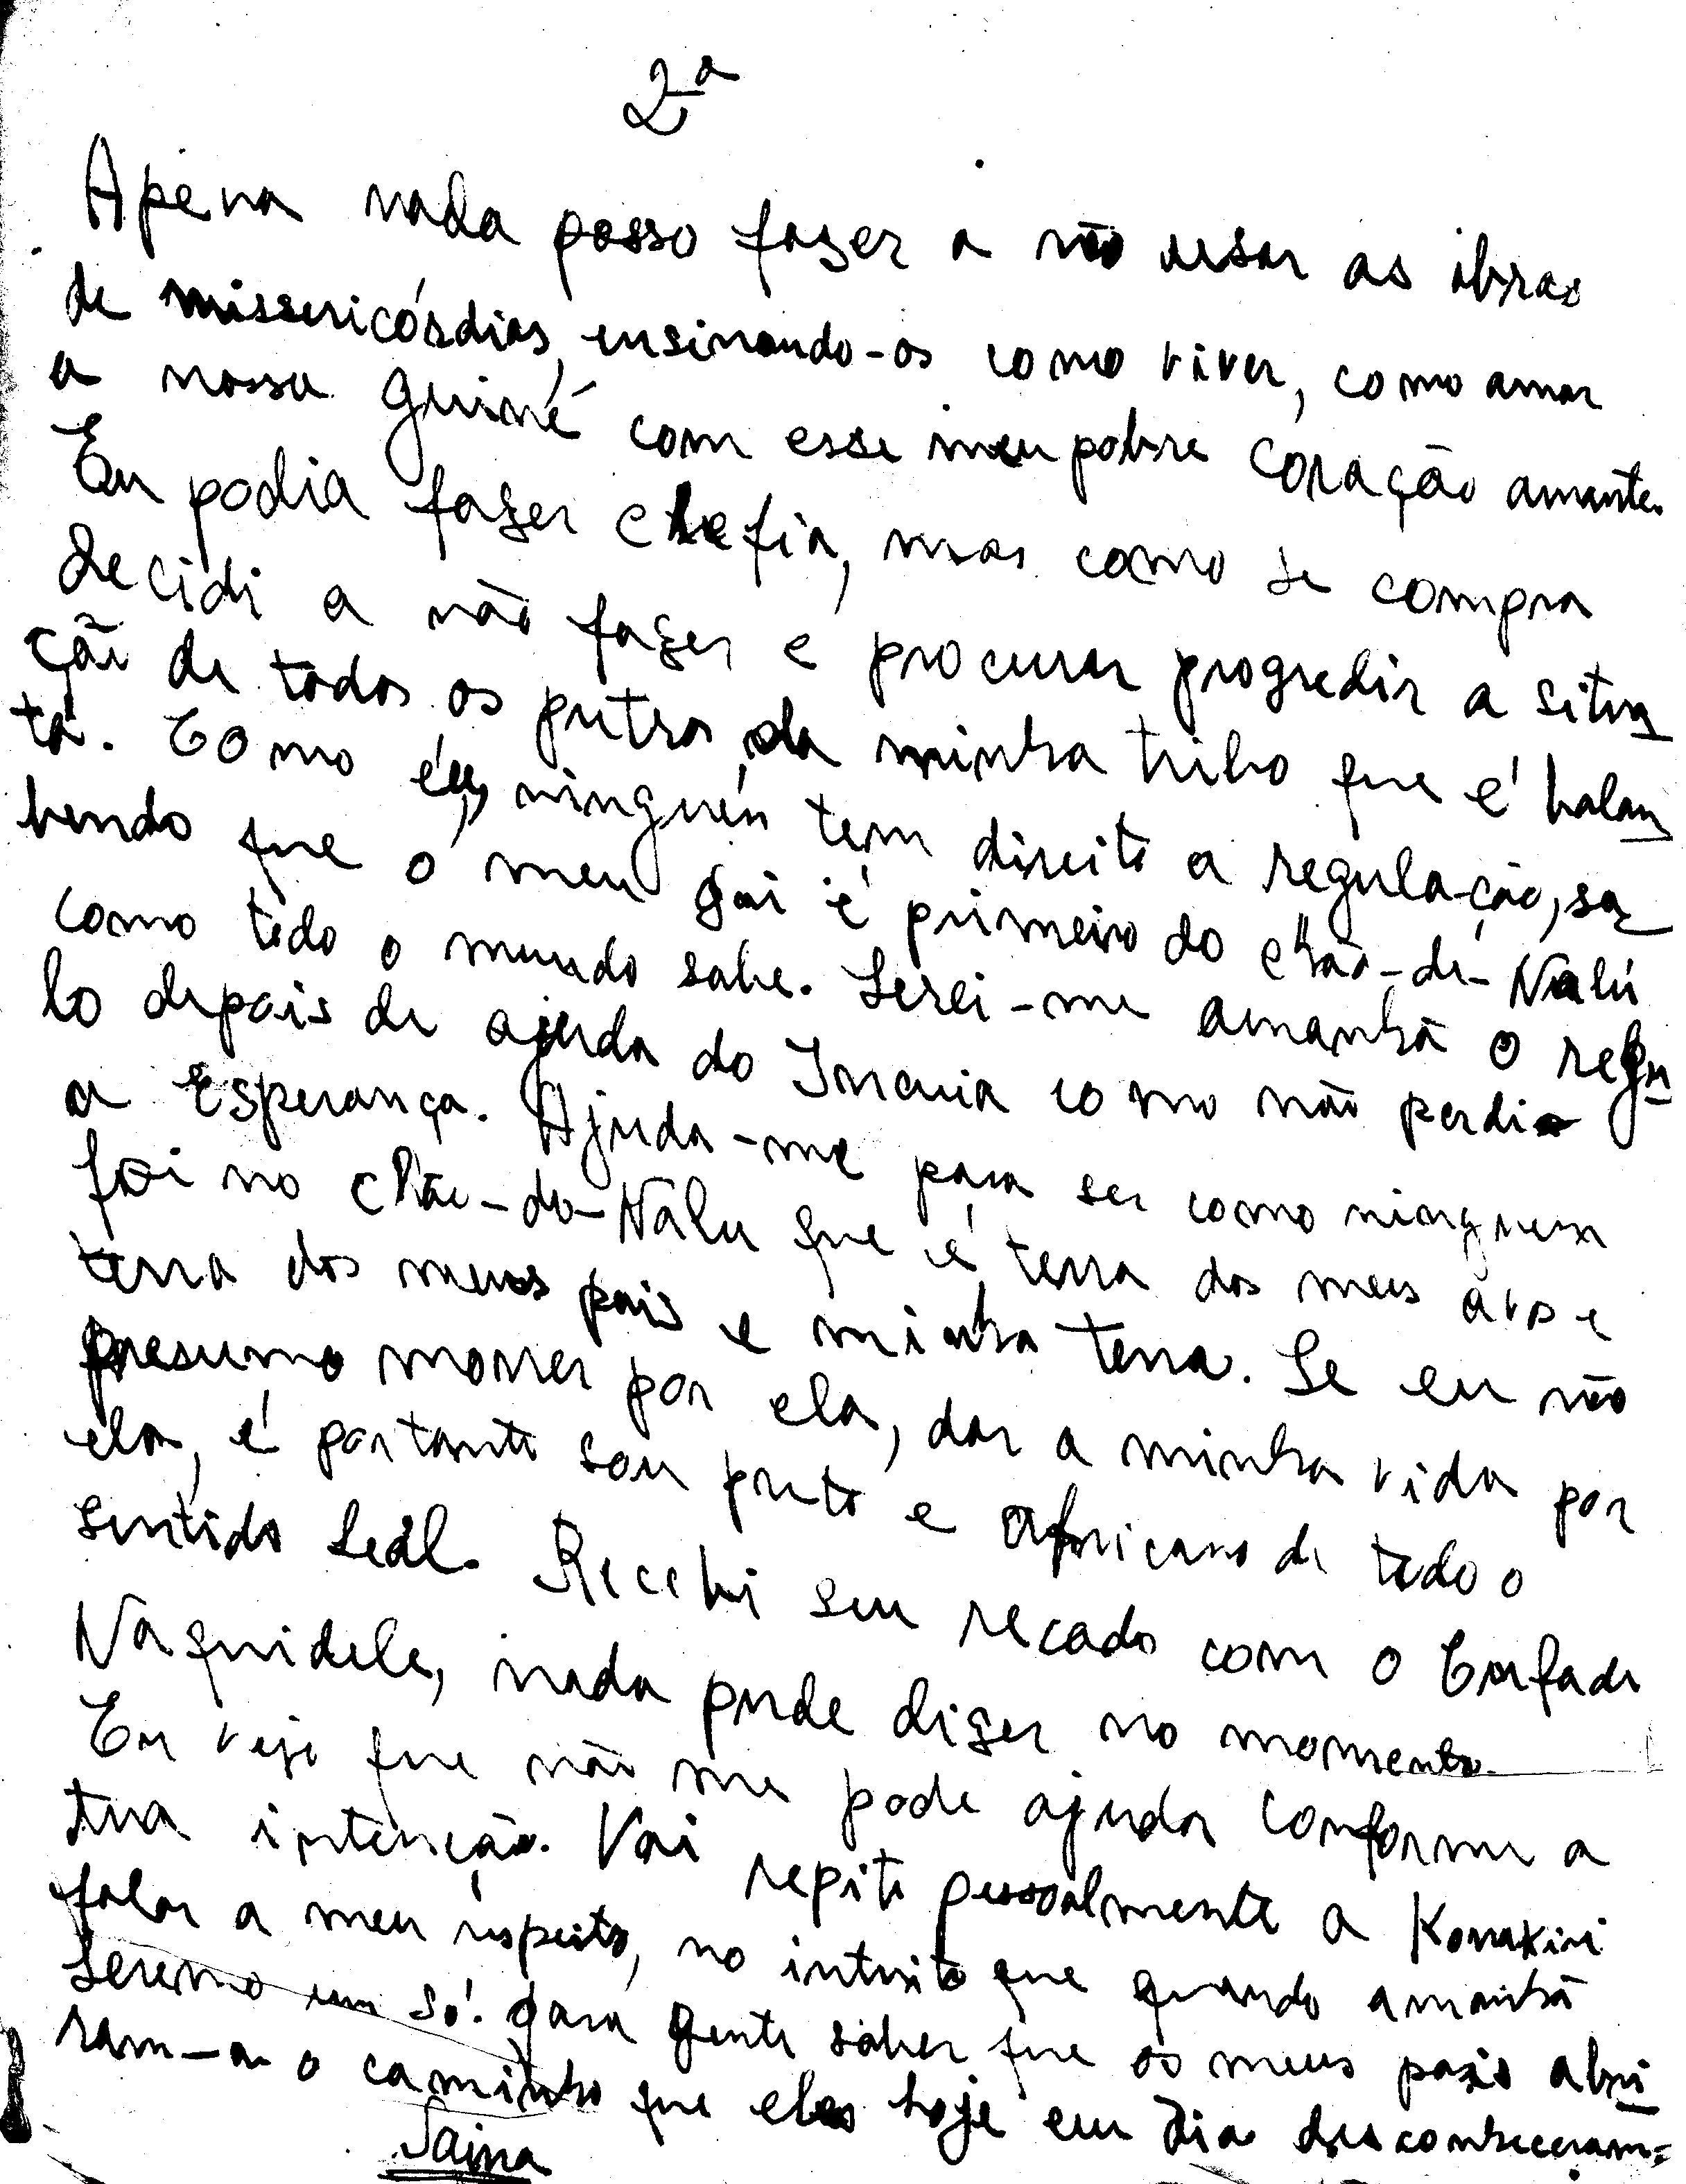 2ª
Apena nada posso fazer a não usar as obras
de missericórdias, ensinando-os como viver, como amar
a nossa Guiné com esse meu pobre coração amante.
Eu podia fazer chefia, mas como se compra
decidi a não fazer e procurar progredir a situa
ção de todos os putros da minha tribo que é balan
ta. Como eu, ninguém tem direito a regulação, sa
bendo que o meu pai é primeiro do chão-de-Nalú
como todo o mundo sabe. Serei-me amanhã o regu
lo depois de ajuda do Inænia como não perdi
a Esperança. Ajuda-me para ser como ninguem
foi no chão-do-Nalu que é terra dos meus avos e
terra dos meus pais e minha terra. Se eu não
presumo morrer por ela, dar a minha vida por
ela, é portanto sou preto e africano de todo o
sentido leál. Recebi seu recado com o
Naquidele, nada pude dizer no momento.
Eu vejo que não me pode ajudar conforme a
tua intenção. Vai repito pessoalmente a Konakiri
falar a meu respeito, no intuito que quando amanhã
seremo um só. para gente saber que os meus pais abri
ram-a o caminho que eles hoje em dia desconheceram=
Saima